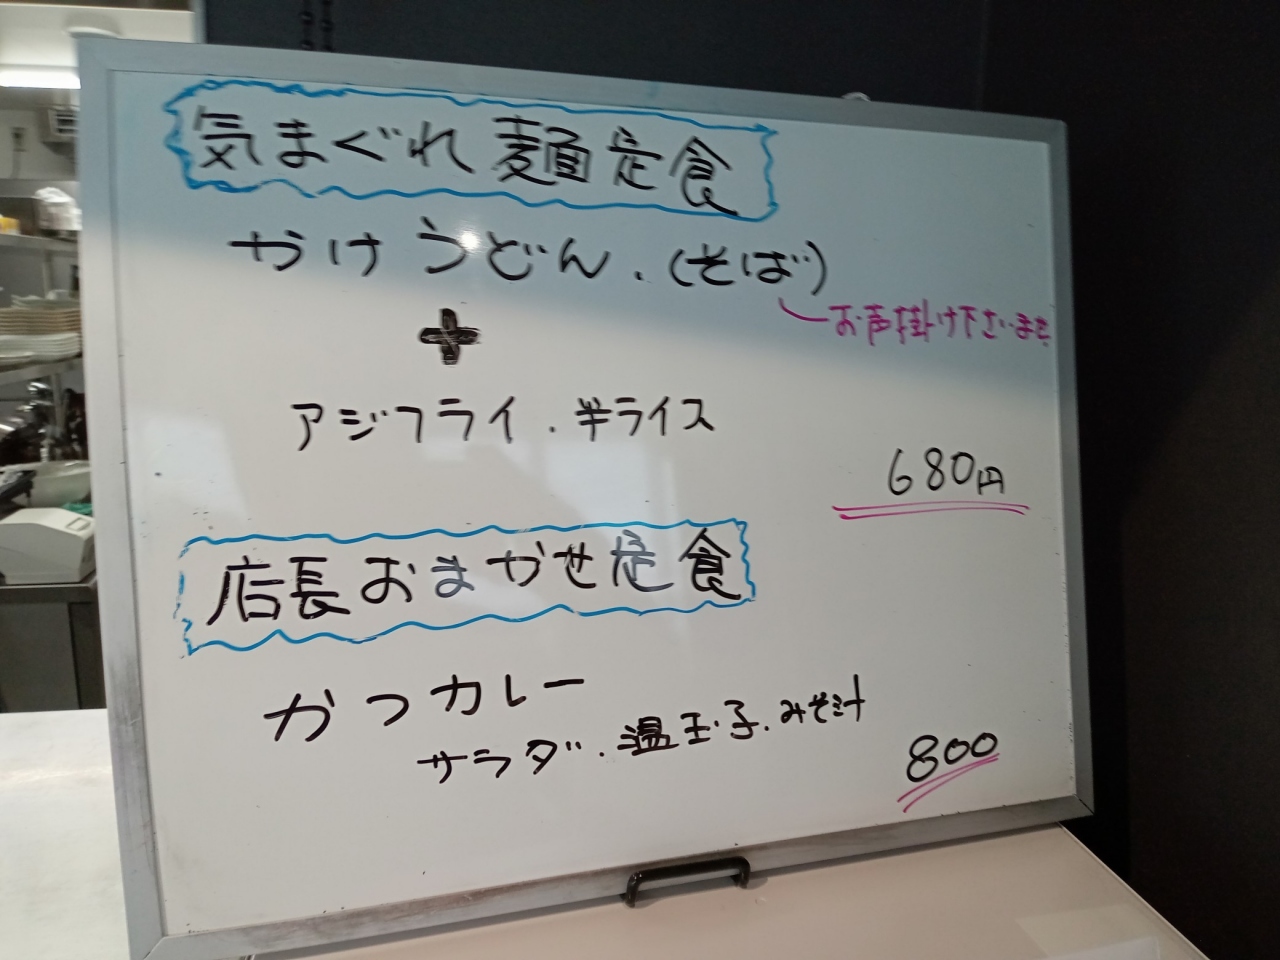 気まぐれ麺定食
かけうどん.(そば)
お声掛け下さいませ
+
アジフライ.半ライス
680円
店長おまかせ定食
かつカレー
サラダ.温玉子.みそ汁
800